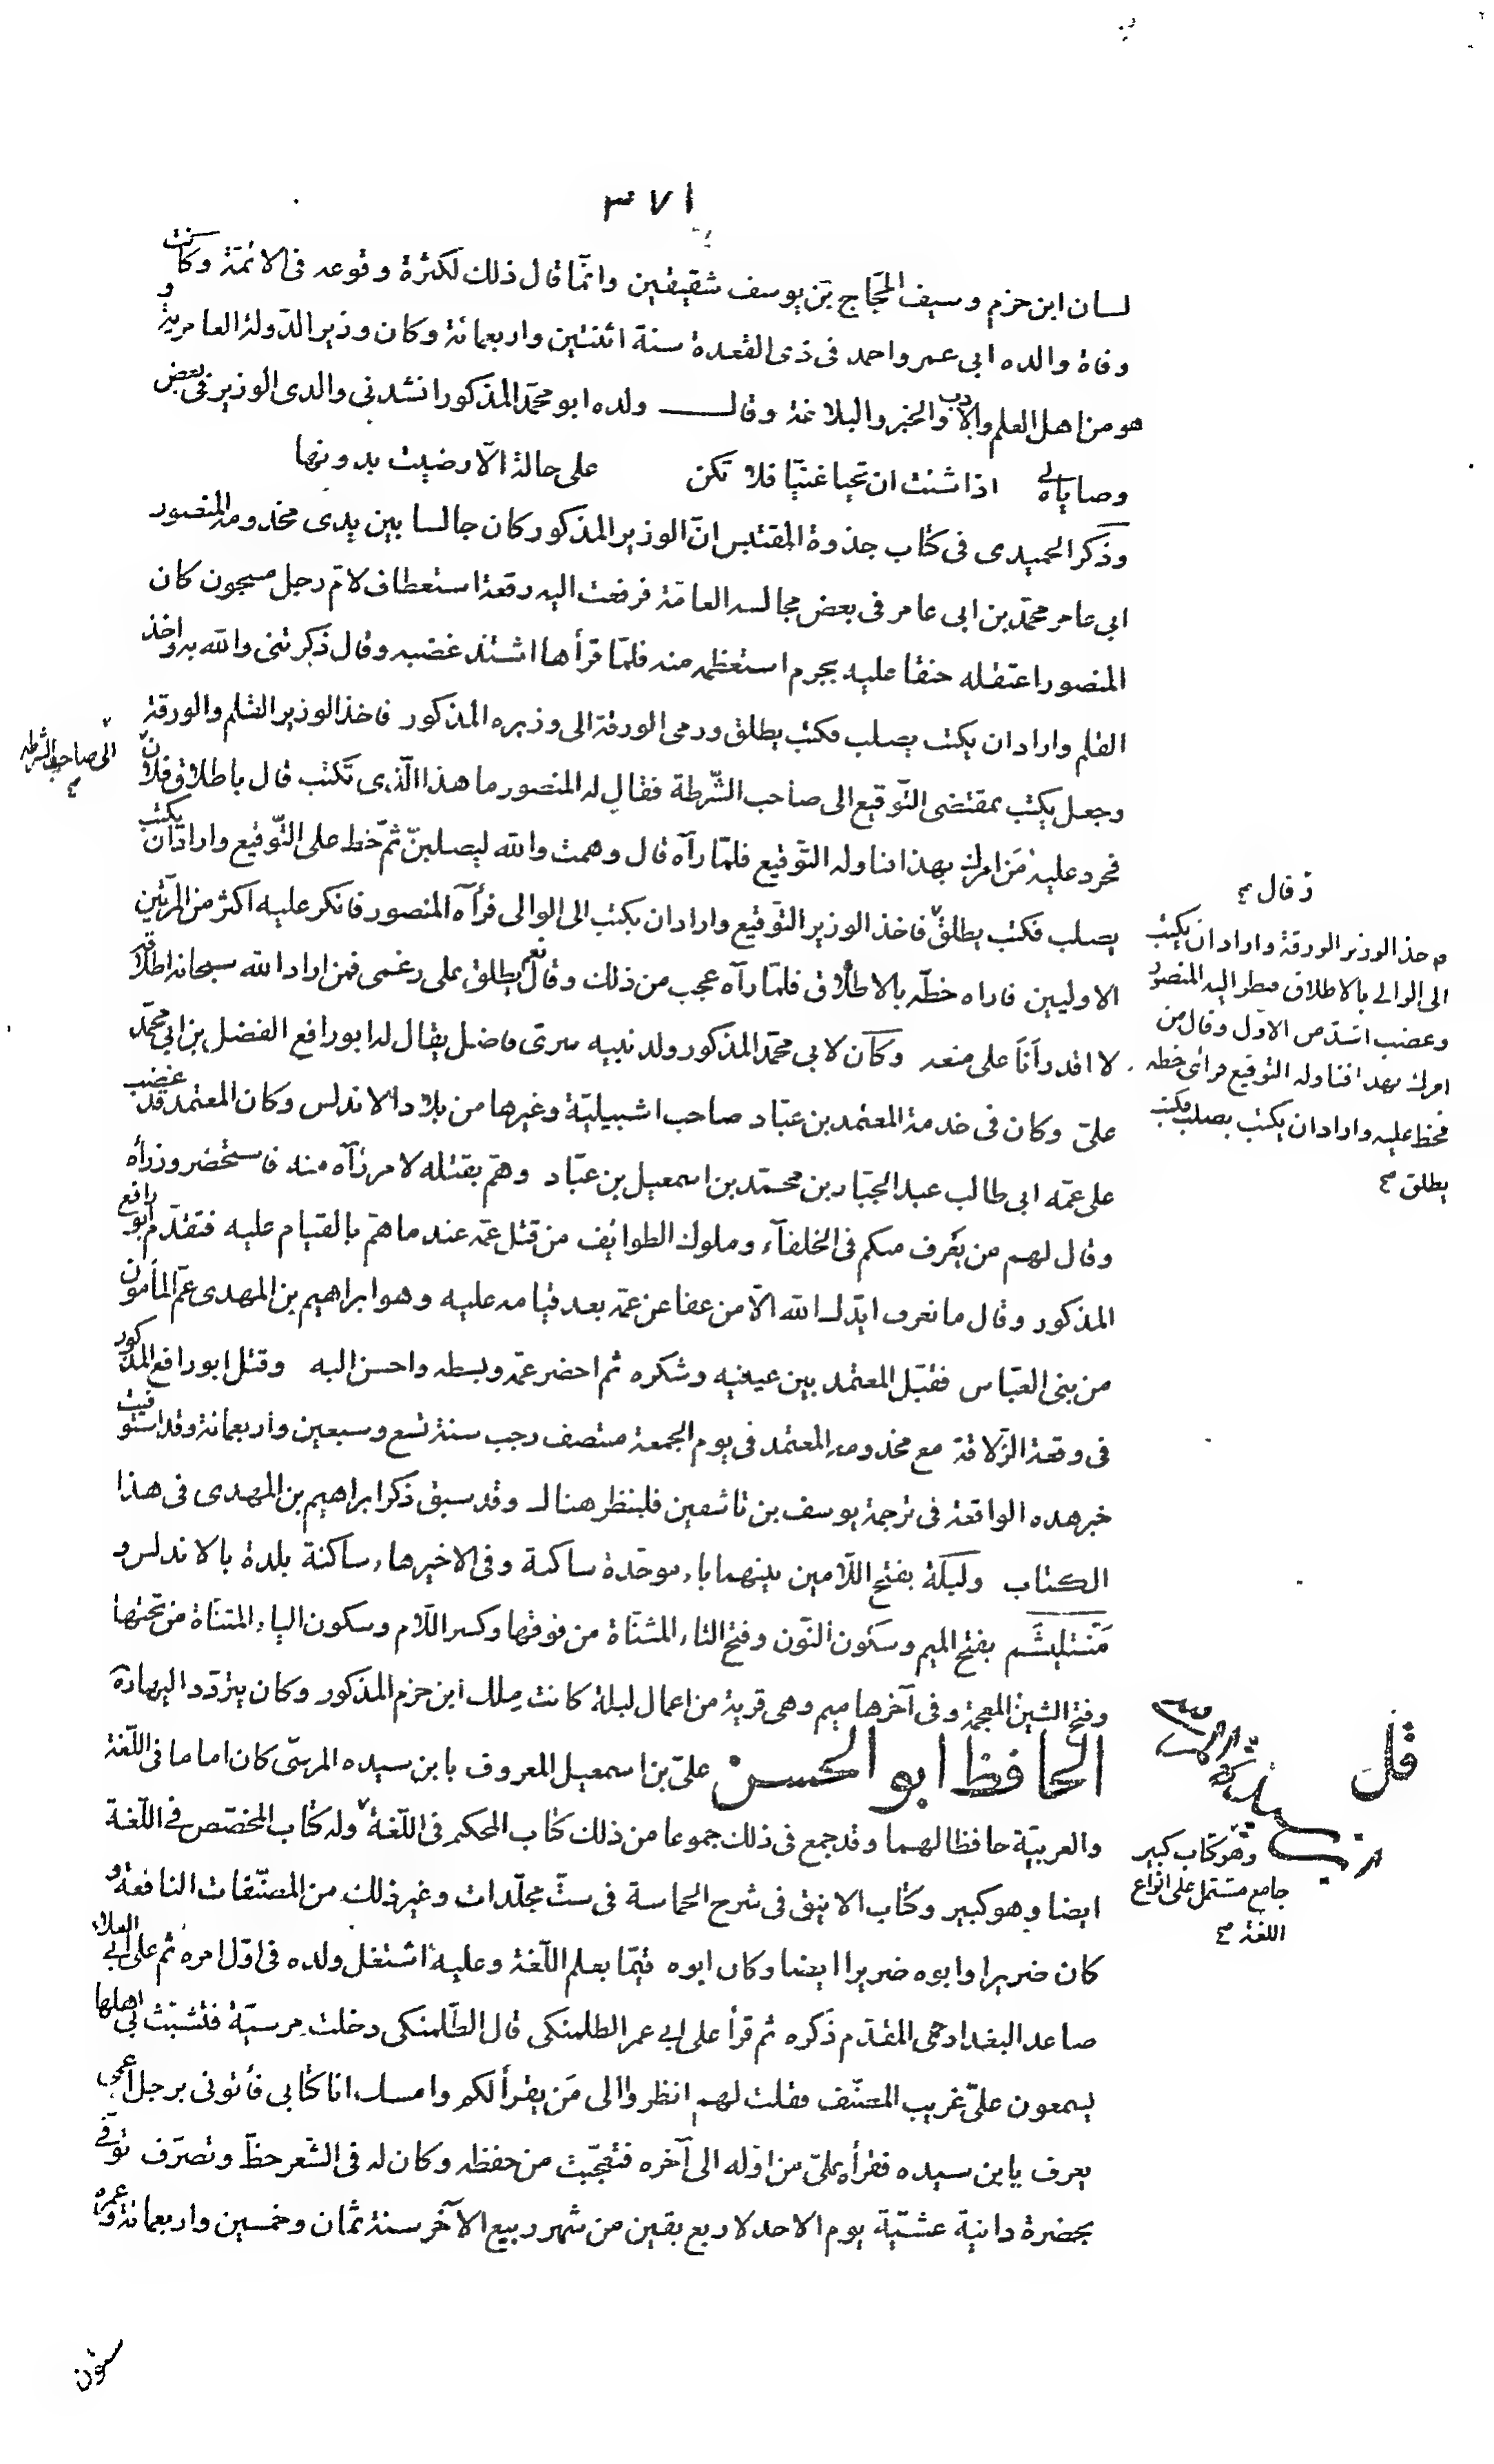 ٣٧١
لسان ابن حزم وسيف الحجّاج بن يوسف شقيقين وانّما قال ذلك لكثرة وقوعه فى الائمّة وكانت
وفاة والده ابى عمر واحمد فى ذى القعدة سنة اثنتين واربعمائة وكان وزير الدّولة العامرية و
هو من اهل العلم والادب والخير والبلاغة وقال ولده ابو محمّد المذكور انشدنى والدى الوزير فى بعض
وصاياه لى اذا شئت ان تحيا غنيّا فلا تكن على حالة الّا رضيت بدونها
وذكر الحميدى فى كتاب جذوة المقتبس انّ الوزير المذكور كان جالسا بين يدى مخدومه المنصور
ابى عامر محمّد بن ابى عامر فى بعض مجالسه العامّة فرفعت اليه رقعة استعطاف لامّ رجل مسجون كان
المنصور اعتقله حنقا عليه بجرم استعظمه منه فلمّا قرأها اشتدّ غضبه وقال ذكرتنى والله به واخذ
القلم واراد ان يكتب يصلب فكتب يطلق ورمى الورقة الى وزيره المذكور فاخذ الوزير القلم والورقة
وجعل يكتب بمقتضى التّوقيع الى صاحب الشّرطة فقال له المنصور ما هذا الّذى تكتب قال باطلاق فلان
الى صاحب الشرطه
فحرد عليه من امرك بهذا فناوله التّوقيع فلمّا رآه قال وهمت والله ليصلبنّ ثمّ خط على التّوقيع واراد ان يكتب
وقال
يصلب فكتب يطلق فاخذ الوزير التّوقيع واراد ان يكتب الى الوالى فرأآه المنصور فانكر عليه اكثر من المرّتين
الاوليين فاراه خطّه بالاطلاق فلمّا رآه عجب من ذلك وقال نعم يطلق على رغمى فمن اراد الله سبحانه اطلاقه
لا اقدر أنا على منعه وكان لابى محمّد المذكور ولد نبيه سرىّ فاضل يقال له ابو رافع الفضل بن ابى محمّد
خذ الوزير الورقة واراد ان يكتب
الى الوالى بالاطلاق فنظر اليه المنصور
وغضب اشدّ من الاوّل وقال من
امرك بهذا فناوله التوقيع فرأى خطه
فخط عليه واراد ان يكتب يصلب فكتب
يطلق
علىّ وكان فى خدمة المعتمد بن عبّاد صاحب اشبيليّة وغيرها من بلاد الاندلس وكان المعتمد قد غضب
على عمّه ابى طالب عبد الجبّار بن محمّد بن اسمعيل بن عبّاد وهمّ بقتله لامر رآه منه فاستحضر وزرأه
وقال لهم من يعرف منكم فى الخلفآء وملوك الطوائف من قتل عمّه عند ما همّ بالقيام عليه فتقدّم ابو رافع
المذكور وقال ما نعرف ايّدك الله الّا من عفا عن عمّه بعد قيامه عليه وهو ابراهيم بن المهدى عمّ المأمون
من بنى العبّاس فقبّل المعتمد بين عينيه وشكره ثم احضر عمّه وبسطه واحسن اليه وقتل ابو رافع المذكور
فى وقعة الزّلاقة مع مخدومه المعتمد فى يوم الجمعة منتصف رجب سنة تسع وسبعين واربعمائة وقد استوفيت
خبر هذه الواقعة فى ترجمة يوسف بن تاشفين فلينظر هناك وقد سبق ذكر ابراهيم بن المهدى فى هذا
الكتاب ولبلة بفتح اللّامين بينهما باء موحّدة ساكنة وفى الاخيرهاء ساكنة بلدة بالاندلس و
مَنْتليشَم بفتح الميم وسكون النّون وفتح التاء المثنّاة من فوقها وكسر اللّام وسكون الياء المثنّاة من تحتها
وفتح الشين المعجمة وفى آخرها ميم وهى قرية من اعمال لبلة كانت ملك ابن حزم المذكور وكان يتردّد اليها
الحافظ ابو الحسن علىّ بن اسمعيل المعروف بابن سيده المرسىّ كان اماما فى اللّغة
والعربيّة حافظا لهما وقد جمع فى ذلك جموعا من ذلك كتاب المحكم فى اللّغة وله كتاب المخصّص فى اللّغة
وهو كتاب كبير
جامع مشتمل على انواع
اللغة
ايضا وهو كبير وكتاب الانيق فى شرح الحماسة فى ستّ مجلّدات وغير ذلك من المصنّفات النافعة و
كان ضريرا وابوه ضريرا ايضا وكان ابوه قيّما بعلم اللّغة وعليه اشتغل ولده فى اوّل امره ثم على ابى العلاء
صاعد البغدادى المقدّم ذكره ثم قرأ على ابى عمر الطلمنكى قال الطّلمنكى دخلت مرسيّة فتشبّث بى اهلها
يسمعون علىّ غريب المصنّف فقلت لهم انظروا الى من يقرأ لكم وامسك انا كتابى فأتونى برجل اعمى
يعرف بابن سيده فقرأه علىّ من اوّله الى آخره فتعجّبت من حفظه وكان له فى الشّعر حظّ وتصرّف توفّى
بحضرة دانية عشيّة يوم الاحد لاربع بقين من شهر ربيع الآخر سنة ثمان وخمسين واربعمائة وعمره
ستون